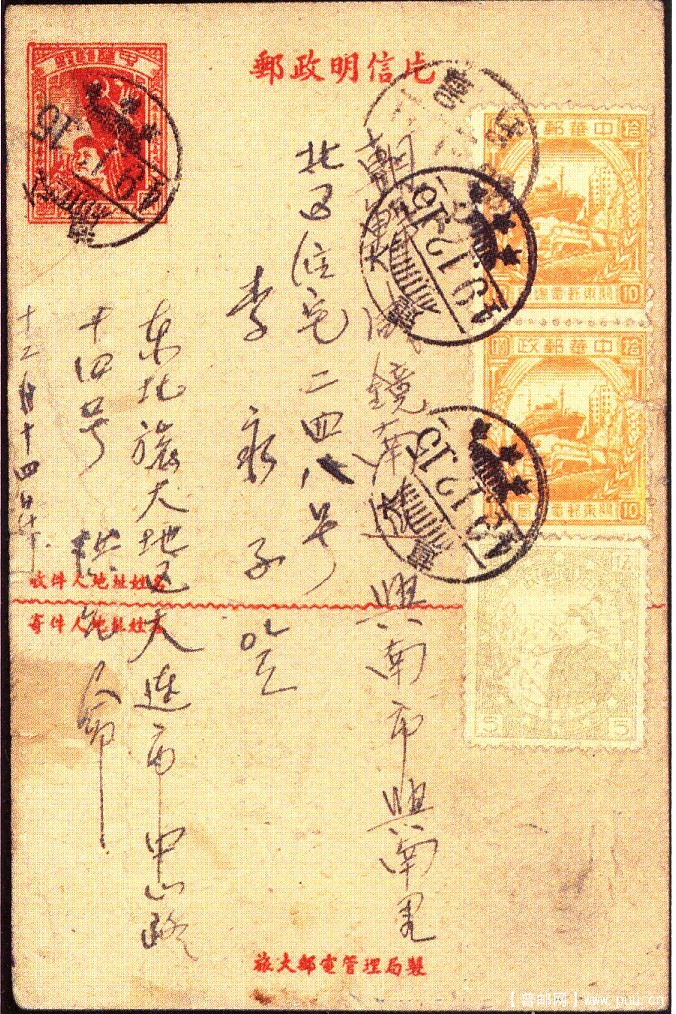 郵政明信片
朝鮮咸鏡南道興南市興南里
北区住宅二四八号
李永子 앞
东北旅大地区大连市中山路
十四号
十二月十四日
收件人地址姓名
寄件人地址姓名
旅大郵電管理局製
中華郵政
拾
10
關東郵電
中華郵政
拾
10
關東郵電
伍
5
5
49.12.15
49.12.15
【普邮网】www.puu.cn